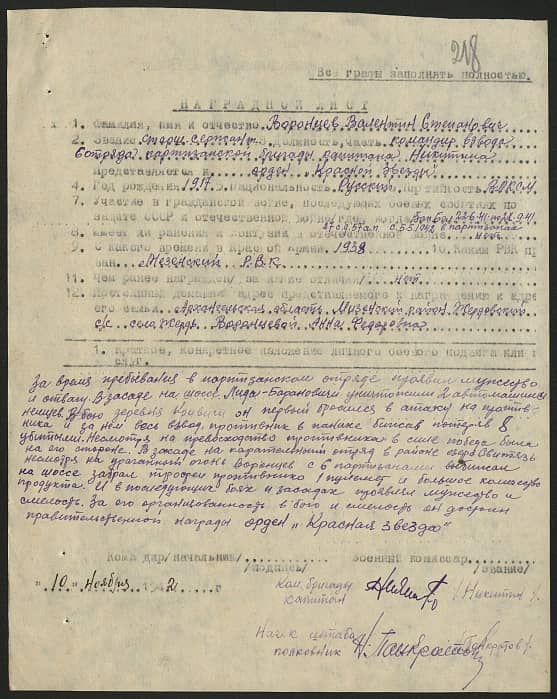 218
Все графы заполнять полностью.
НАГРАДНОЙ ЛИСТ
1. Фамилия, имя и отчество Воронцев Валентин Степанович
2. Звание Старш. сержант 3. должность, часть командир взвода
6 отряда партизанской бригады капитана Никитина
Представляется к орден „Красной Звезды“
4. Год рождения 1917 5. Национальность Русский партийность ВЛКСМ
7. Участие в гражданской войне, последующих боевых действиях по
защите СССР и отечественной войне /где, когда/
в партизанах
8. имеет ли ранения и контузии в отечественной войне нет
9. С какого времени в Красной Армии 1938 10. Каким РВК
зван Мезенский Р.В.К.
11. Чем ранее награжден /за какие отличия/ нет
12. Постоянный домашний адрес представляемого к награждению и адрес
его семьи Архангельская область Мезенский район Жердовский
с/с село Жердь Воронцевой Анна Федоровна
1. Краткое, конкретное изложение личного боевого подвига или
слуг.
За время пребывания в партизанском отряде проявил мужество
и отвагу. В засаде на шоссе Лида-Барановичи уничтожили 2 автомашины
немцев. В бою деревня он первый бросился в атаку на против-
ника и за ним весь взвод. Противник в панике бежав потеряв 8
убитыми. Несмотря на превосходство противника в силе победа была
на его стороне. В засаде на карательный отряд в районе озера Свитязь
несмотря на ураганный огонь Воронцев с 6 партизанами
на шоссе забрал трофеи противника 1 пулемет и большое количество
продукта. И в последующих боях и засадах проявлял мужество и
смелость. За его организованность в бою и смелость он достоин
правительственной награды орден „Красная звезда“
Командир/начальник/ военный комиссар
/подпись/ /звание/
„10“ ноября 1942 г
Ком. бригады
капитан /Никитин/
Нач-к штаба
полковник